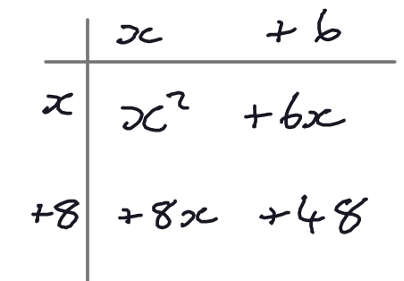 x +6
x x² +6x
+8 +8x +48